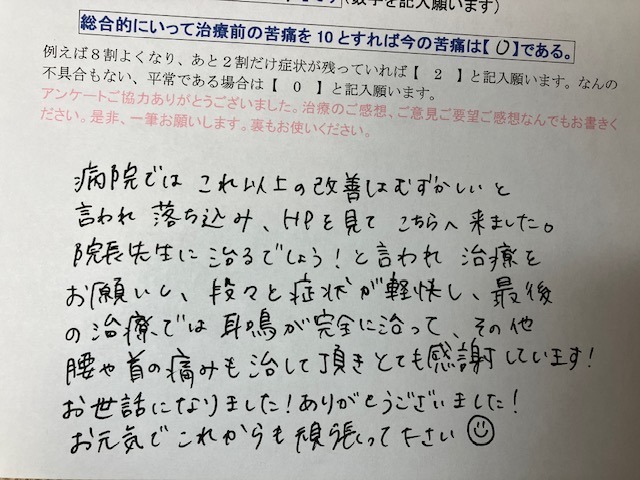 (数字を記入願います)
総合的にいって治療前の苦痛を10とすれば今の苦痛は【 0 】である。
例えば8割よくなり、あと2割だけ症状が残っていれば【 2 】と記入願います。なんの
不具合もない、平常である場合は【 0 】と記入願います。
アンケートご協力ありがとうございました。治療のご感想、ご意見ご要望ご感想なんでもお書きく
ださい。是非、一筆お願いします。裏もお使いください。
病院では これ以上の改善はむずかしいと
言われ 落ち込み、HPを見て こちらへ来ました。
院長先生に 治るでしょう!と言われ 治療を
お願いし、段々と症状が軽快し、最後
の治療では 耳鳴が完全に治って、その他
腰や首の痛みも治して頂きとても感謝しています!
お世話になりました!ありがとうございました!
お元気でこれからも頑張って下さい